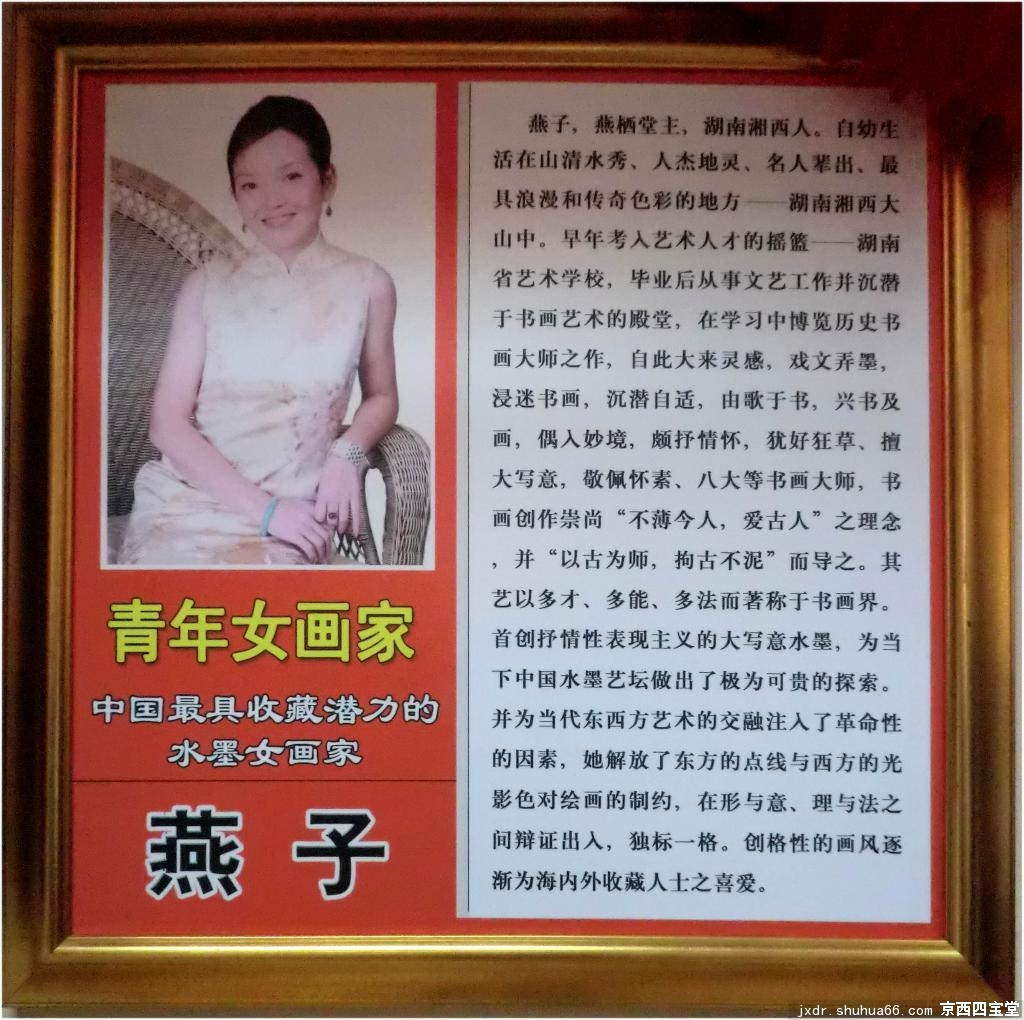 青年女画家
中国最具收藏潜力的
水墨女画家
燕子
燕子，燕栖堂主，湖南湘西人。自幼生
活在山清水秀、人杰地灵、名人辈出、最
具浪漫和传奇色彩的地方——湖南湘西大
山中。早年考入艺术人才的摇篮——湖南
省艺术学校，毕业后从事文艺工作并沉潜
于书画艺术的殿堂，在学习中博览历史书
画大师之作，自此大来灵感，戏文弄墨，
浸迷书画，沉潜自适，由歌于书，兴书及
画，偶入妙境，颇抒情怀，犹好狂草、擅
大写意，敬佩怀素、八大等书画大师，书
画创作崇尚“不薄今人，爱古人”之理念
，并“以古为师，拘古不泥”而导之。其
艺以多才、多能、多法而著称于书画界。
首创抒情性表现主义的大写意水墨，为当
下中国水墨艺坛做出了极为可贵的探索。
并为当代东西方艺术的交融注入了革命性
的因素，她解放了东方的点线与西方的光
影色对绘画的制约，在形与意、理与法之
间辩证出入，独标一格。创格性的画风逐
渐为海内外收藏人士之喜爱。
jxdr.shuhua66.com 京西四宝堂